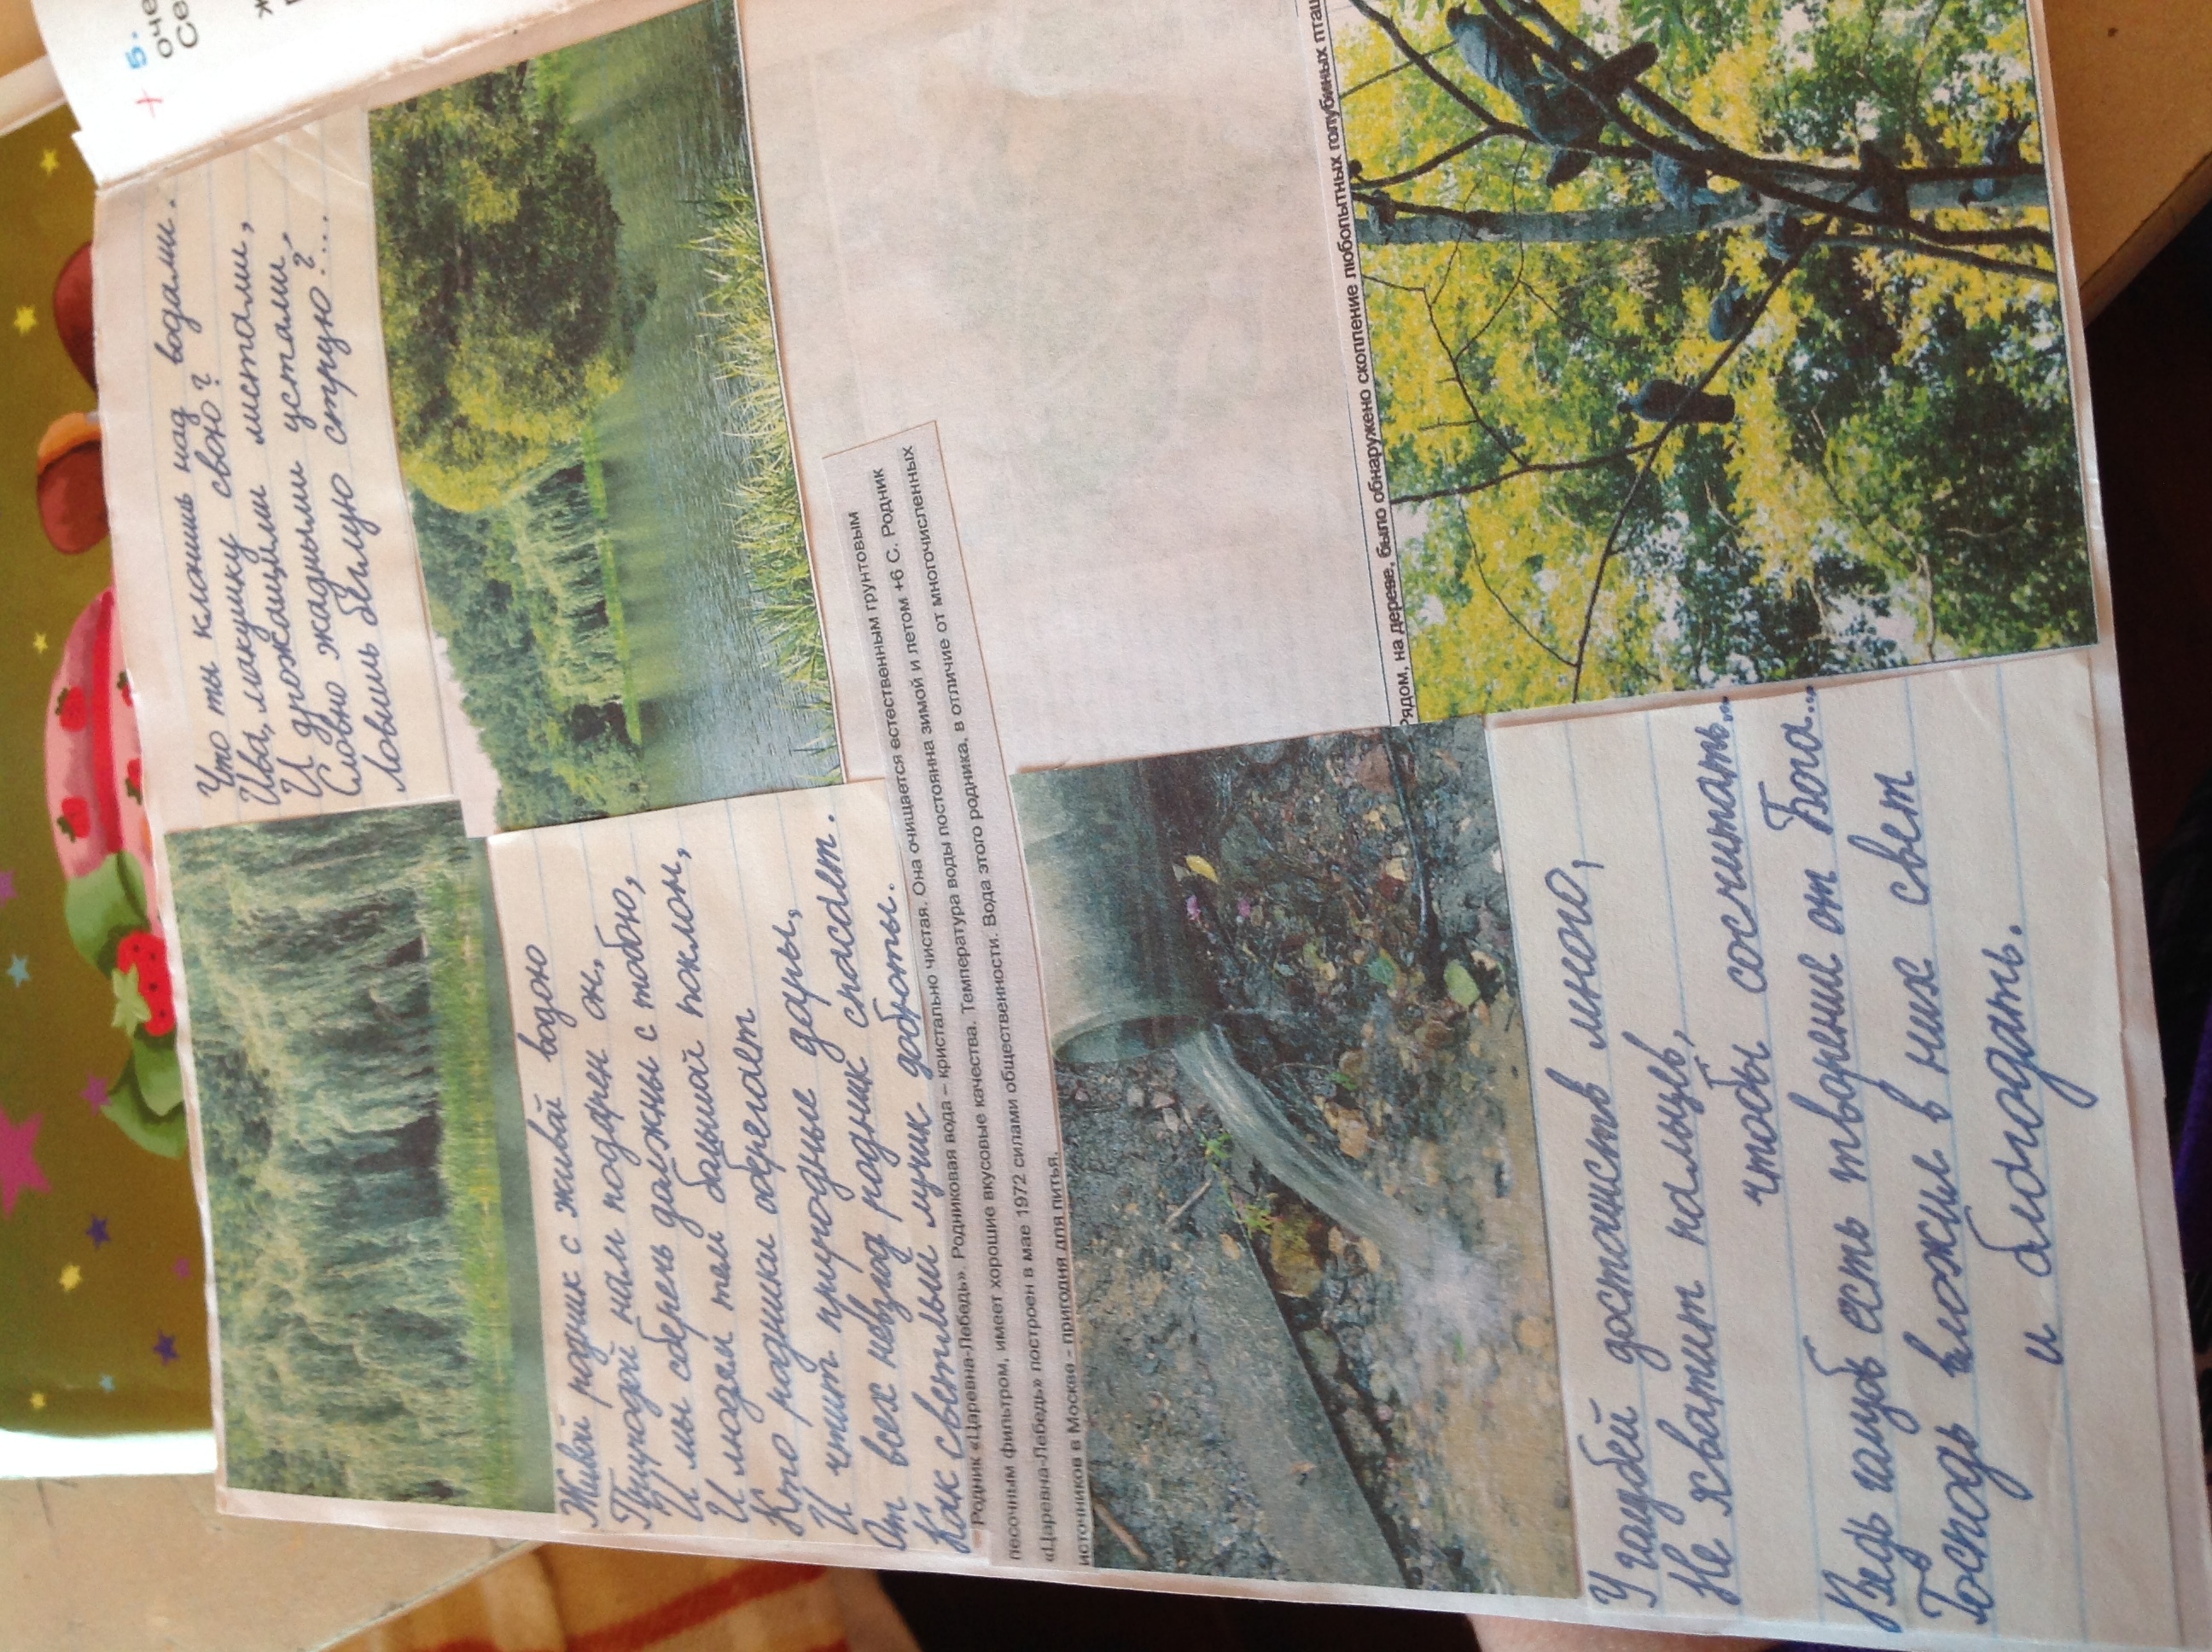 + 5.
оче
Се
Что ты клонишь над водами.
Ива, макушку свою?
И дрожащими листами,
Словно жадными устами
Ловишь беглую струю?...
Живой родник с живой водою
Природой нам подарен он.
И мы сберечь должны с тобою,
И людям тем большой поклон,
Кто родники оберегает
И чтит природные дары,
От всех невзгод родник спасает.
Как светлый лучик доброты.
Родник «Царевна-Лебедь». Родниковая вода – кристально чистая. Она очищается естественным грунтовым
песочным фильтром, имеет хорошие вкусовые качества. Температура воды постоянна зимой и летом +6 С. Родник
«Царевна-Лебедь» построен в мае 1972 силами общественности. Вода этого родника, в отличие от многочисленных
источников в Москве - пригодна для питья.
Рядом, на дереве, было обнаружено скопление любопытных голубиных
У голубей достоинств много,
Не хватит пальцев,
чтобы сосчитать...
Ведь голубь есть творение от Бога...
Господь вложил в них свет
и благодать.